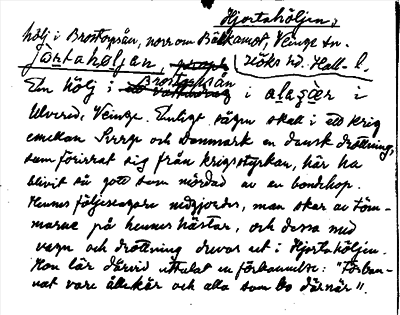 Hjortahöljen,
hölj i Brostorpsån, norr om Bölkamot, Veinge sn.
jo̱ṟtahøljan, Höks hd. Hall. l.
En hölj i Brostorpsån i ala̱s̱æ̱r i
Ulvered, Veinge. Enligt sägn skall i ett krig
emellan Sverge och Danmark en dansk drottning,
som förirrat sig från krigsstyrkan, här ha
blivit så gott som mördad av en bondhop.
Hennes följeslagare nedgjordes, man skar av töm-
marne på hennes hästar, och dessa med
vagn och drottning drevos ut i Hjortahöljen.
Hon lär därvid uttalat en förbannelse: "Förban-
nat vare Ålakär och alla som bo därnär".